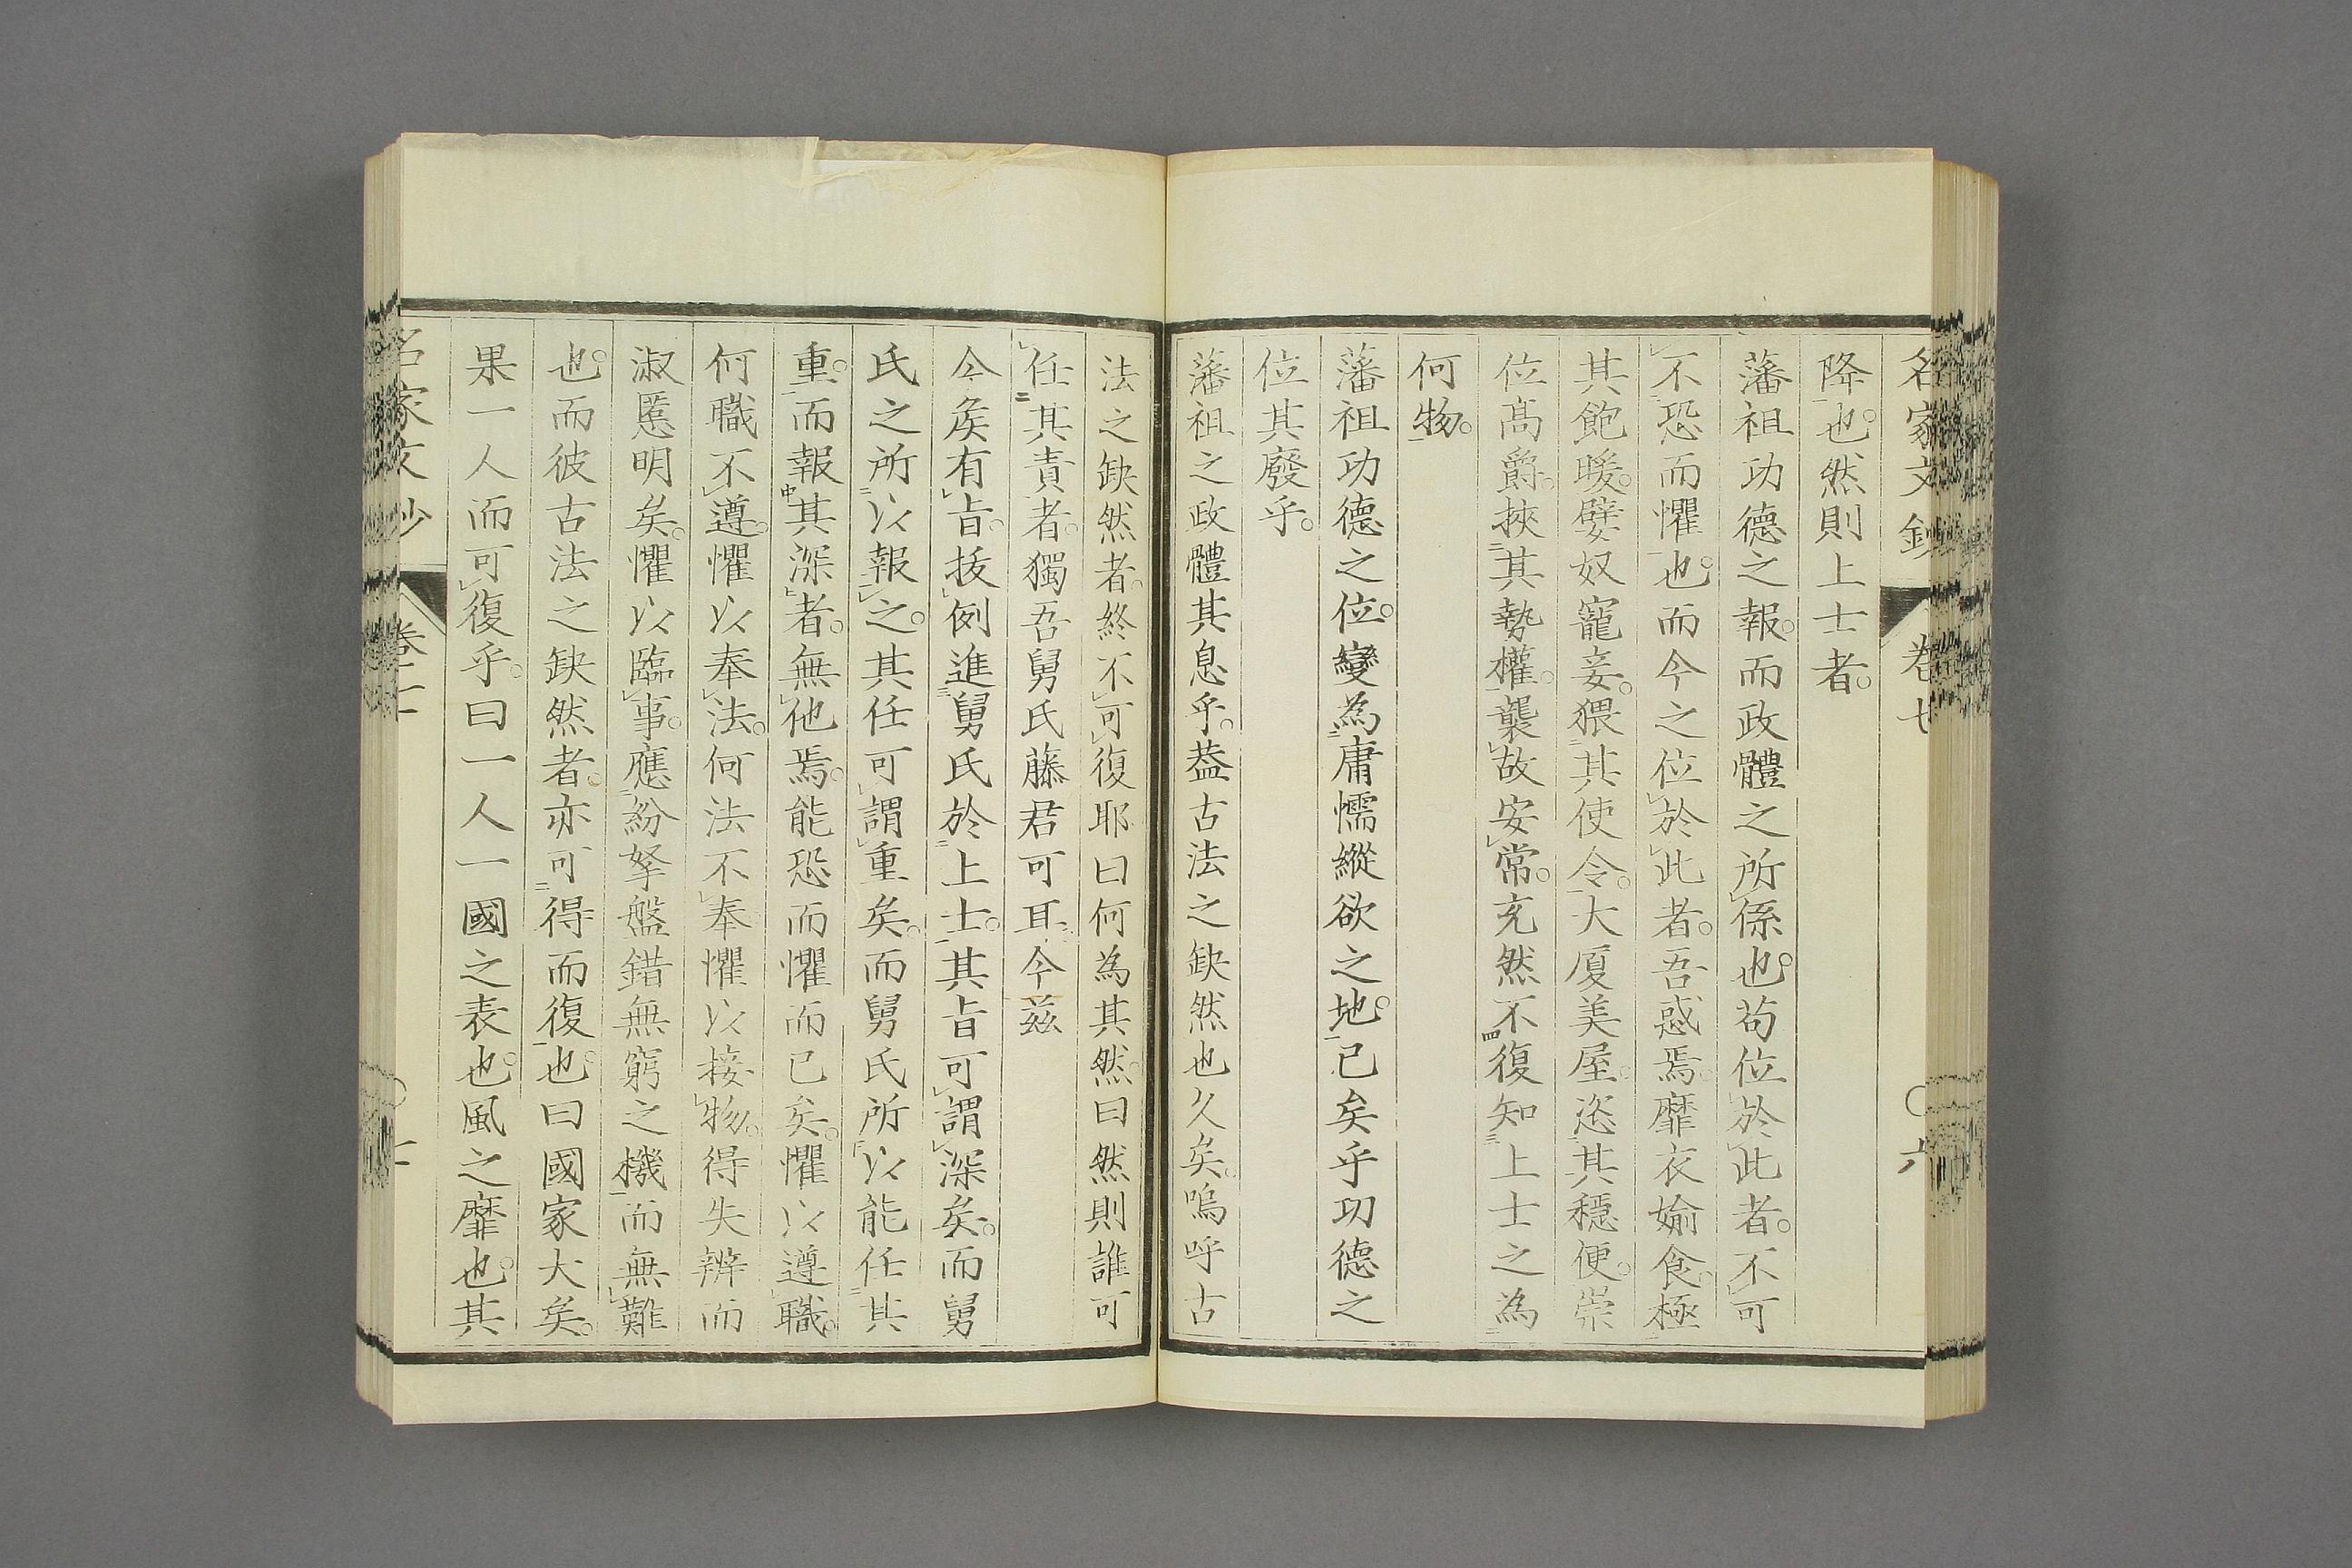 名家文鈔 卷七 〇六
降也。然則上士者。
藩祖功德之報。而政體之所係也。苟位於此者。不可
不恐而懼也。而今之位於此者。吾惑焉。靡衣媮食。極
其飽暖。嬖奴寵妾。猥其使令。大厦美屋。恣其穩便。崇
位髙爵。挾其勢權。襲故安常。充然不復知上士之為
何物。
藩祖功德之位。變為庸懦縱欲之地。已矣乎功德之
位其廢乎。
藩祖之政體其息乎。葢古法之缺然也久矣。嗚呼古
法之缺然者。終不可復耶曰何為其然。曰然則誰可
任其責者。獨吾舅氏藤君可耳。今茲
今矦有旨。拔例進舅氏於上士。其旨可謂深矣。而舅
氏之所以報之。其任可謂重矣。而舅氏所以能任其
重。而報其深者。無他焉。能恐而懼而已矣。懼以遵職。
何職不遵。懼以奉法。何法不奉懼以接物。得失辨而
淑慝明矣。懼以臨事。應紛拏盤錯無窮之機而無難
也。而彼古法之缺然者。亦可得而復也。曰國家大矣。
果一人而可復乎。曰一人一國之表也。風之靡也。其
名家文鈔